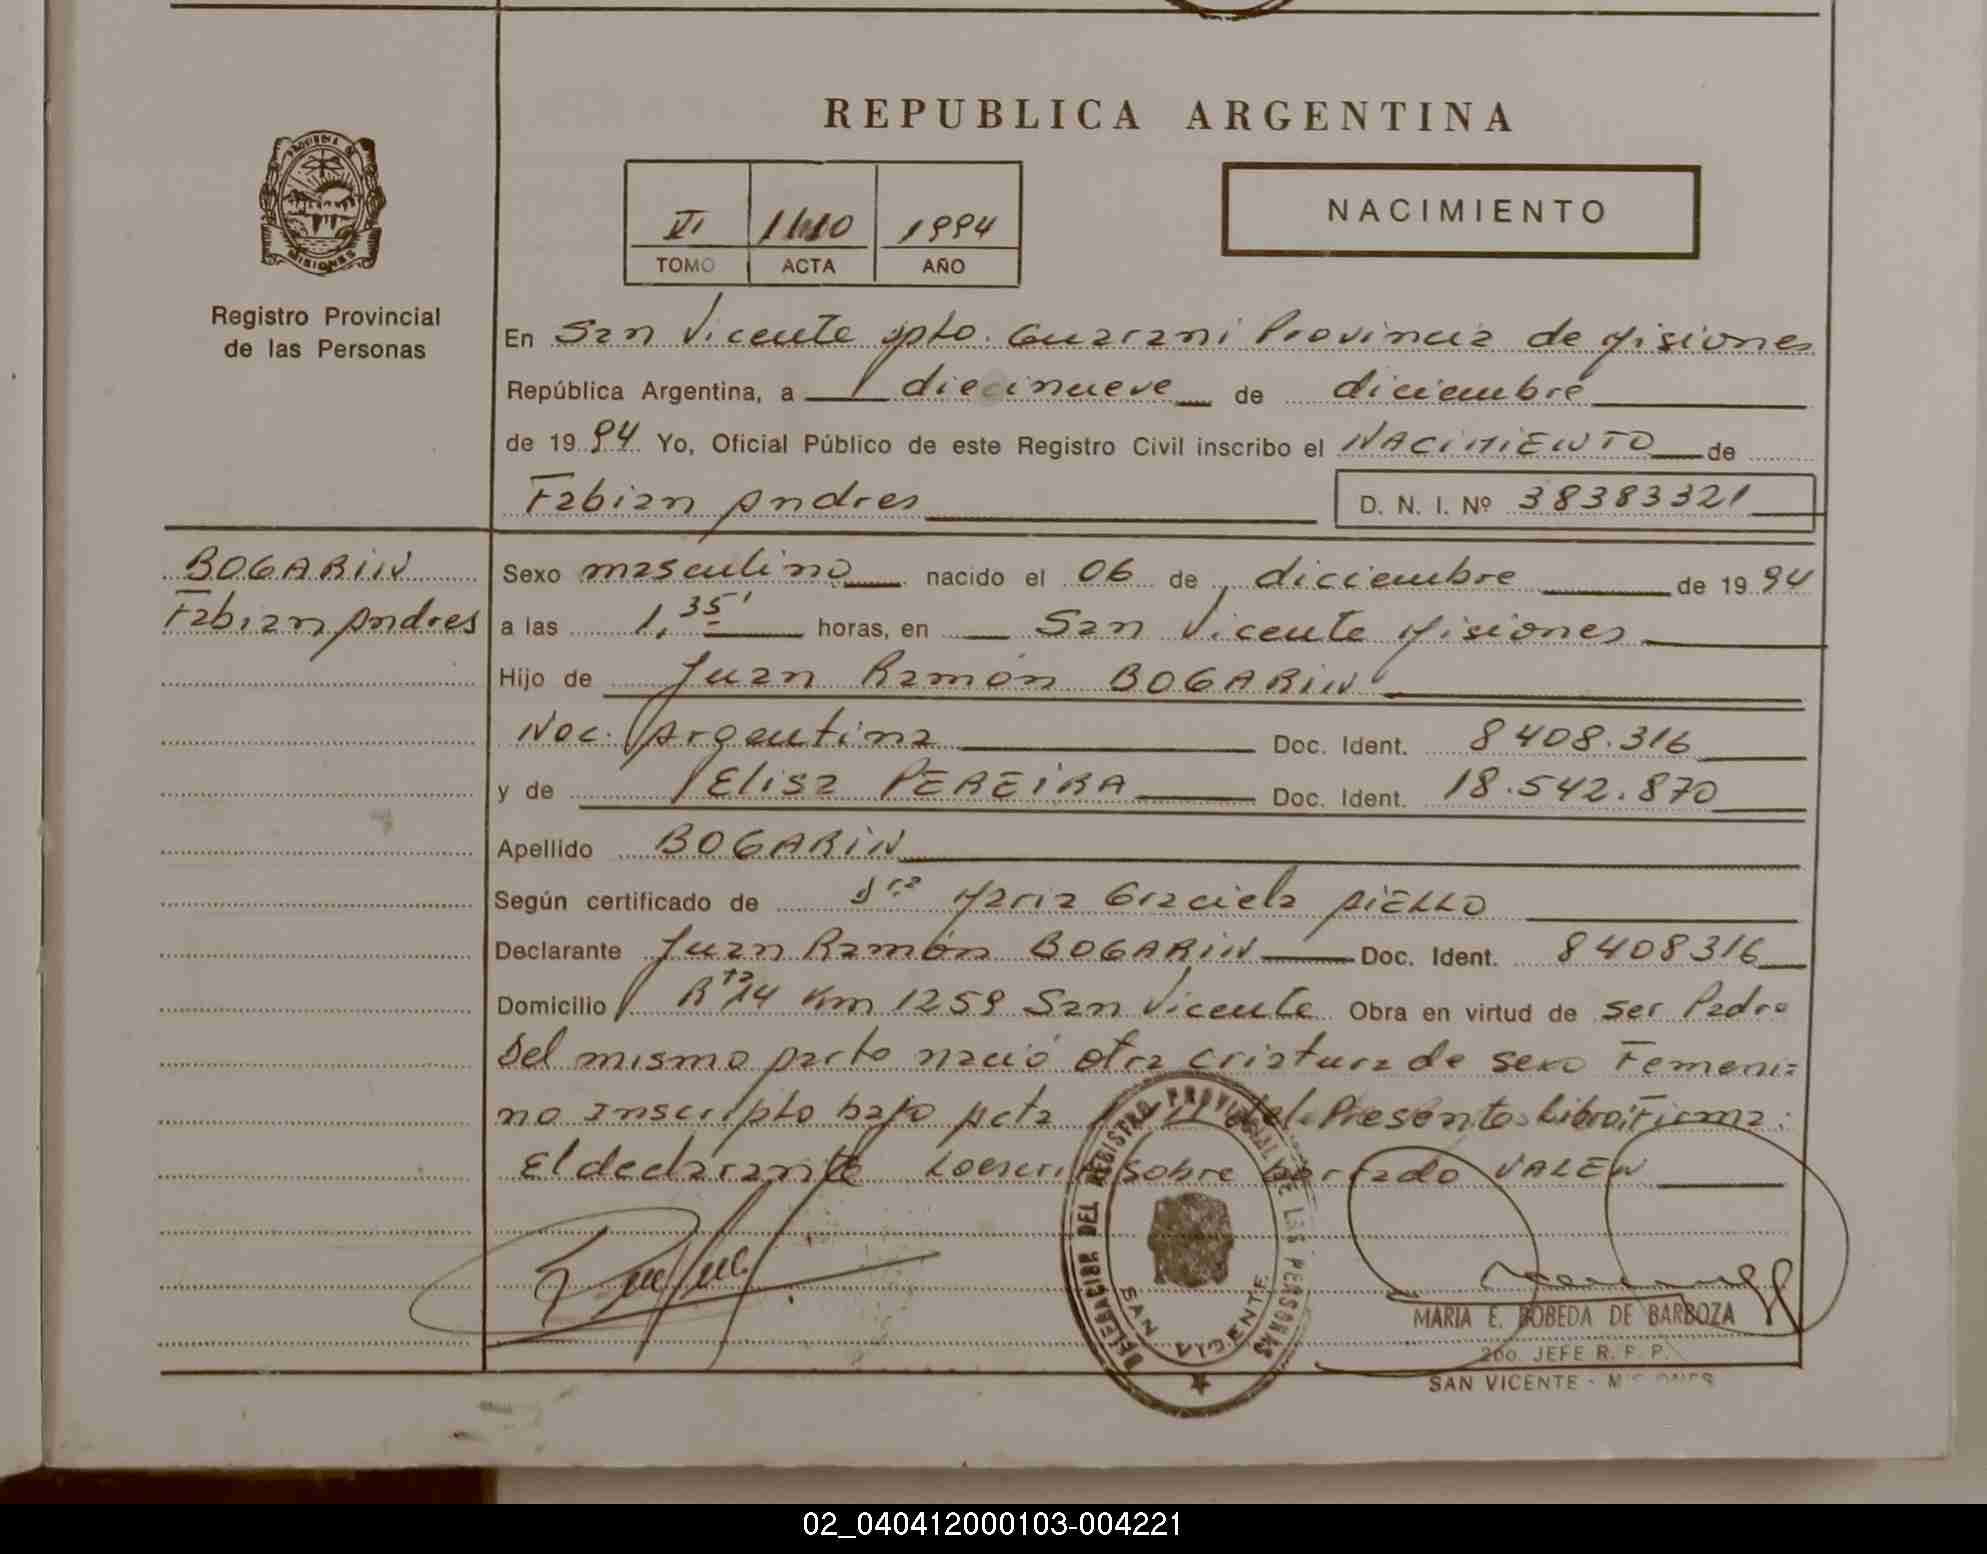 REPUBLICA ARGENTINA
VI 1994
TOMO ACTA AÑO
NACIMIENTO
PROVINCIA DE
MISIONES
Registro Provincial
de las Personas
En San Vicente Dpto. Guarani Provincia de Misiones
República Argentina, a diecinueve de diciembre
de 1994 Yo, Oficial Público de este Registro Civil inscribo el NACIMIENTO de
Fabian Andres D. N. I. Nº 38383321
BOGARIN
Fabian Andres
Sexo masculino nacido el 06 de diciembre de 1994
a las 1,35' horas, en San Vicente Misiones
Hijo de Juan Ramón BOGARIN
Nac. Argentina Doc. Ident. 8408.316
y de Elisa PEREIRA Doc. Ident. 18.542.870
Apellido BOGARIN
Según certificado de Dra Maria Graciela AIELLO
Declarante Juan Ramón BOGARIN Doc. Ident. 8408316
Domicilio Rta 14 Km 1259 San Vicente Obra en virtud de ser Padre
Del mismo parto nació otra criatura de sexo Femeni=
no inscripto bajo Acta del Presente Libro; Firma:
El declarante Lo escrito sobre borrado VALEN
DELEGACION DEL REGISTRO PROVINCIAL DE LAS PERSONAS
SAN VICENTE
MARIA E. BOBEDA DE BARBOZA
2do. JEFE R. P. P.
SAN VICENTE - MISIONES
02_040412000103-004221